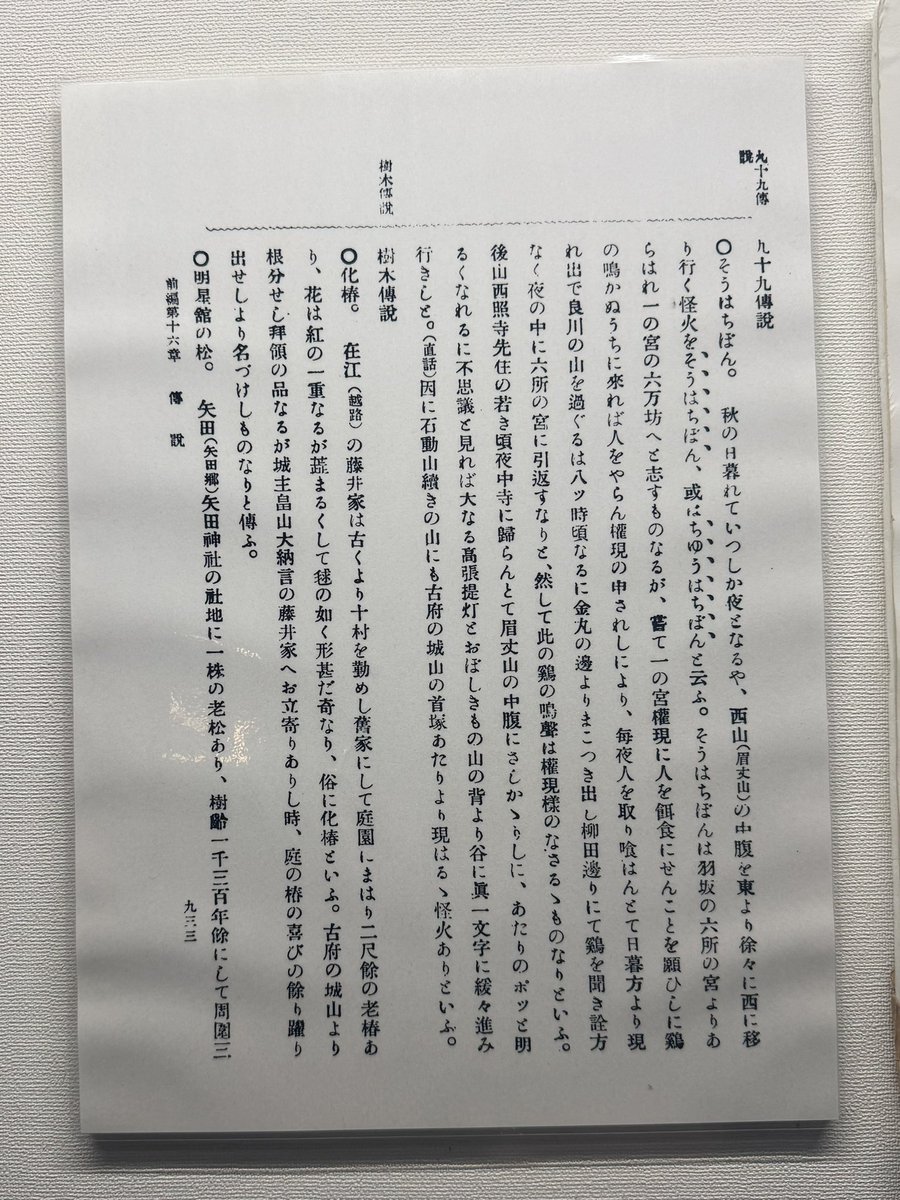 九十九傳
說
樹木傳說
九十九傳說
〇そうはちぼん。　秋の日暮れていつしか夜となるや、西山(眉丈山)の中腹を東より徐々に西に移
り行く怪火をそうはちぼん、或はちゆうはちぼんと云ふ。そうはちぼんは羽坂の六所の宮よりあ
らはれ一の宮の六万坊へと志すものなるが、嘗て一の宮權現に人を餌食にせんことを願ひしに鷄
の鳴かぬうちに來れば人をやらん權現の申されしにより、每夜人を取り喰はんとて日暮方より現
れ出で良川の山を過ぐるは八ッ時頃なるに金丸の邊よりまこつき出し柳田邊りにて鷄を聞き詮方
なく夜の中に六所の宮に引返すなりと、然して此の鷄の鳴聲は權現樣のなさるゝものなりといふ。
後山西照寺先住の若き頃夜中寺に歸らんとて眉丈山の中腹にさしかゝりしに、あたりのポッと明
るくなれるに不思議と見れば大なる高張提灯とおぼしきもの山の背より谷に眞一文字に緩々進み
行きしと。(直話)因に石動山續きの山にも古府の城山の首塚あたりより現はるゝ怪火ありといふ。
樹木傳說
〇化椿。　在江(越路)の藤井家は古くより十村を勤めし舊家にして庭園にまはり二尺餘の老椿あ
り、花は紅の一重なるが蕋まるくして毬の如く形甚だ奇なり、俗に化椿といふ。古府の城山より
根分せし拜領の品なるが城主畠山大納言の藤井家へお立寄りありし時、庭の椿の喜びの餘り躍り
出せしより名づけしものなりと傳ふ。
〇明星館の松。　矢田(矢田鄕)矢田神社の社地に一株の老松あり、樹齡一千三百年餘にして周圍三
前編第十六章　傳　說
九三三